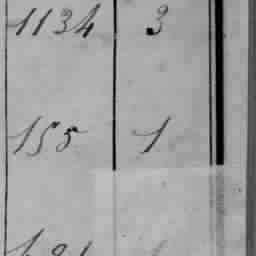 1134 3
155 1